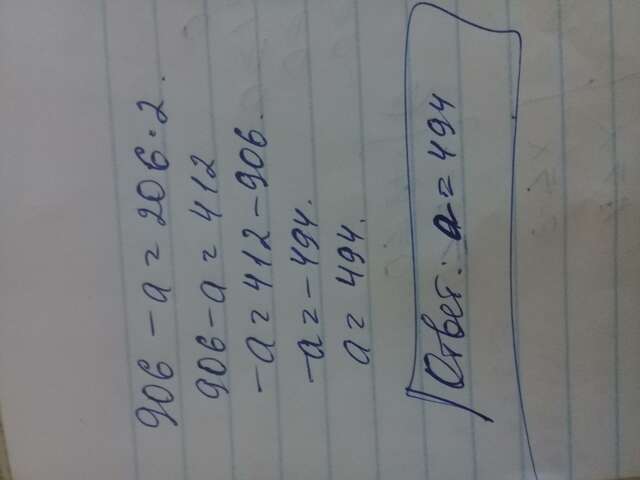 906 - a = 206 · 2.
906 - a = 412
-a = 412 - 906.
-a = -494.
a = 494.
Ответ: a = 494